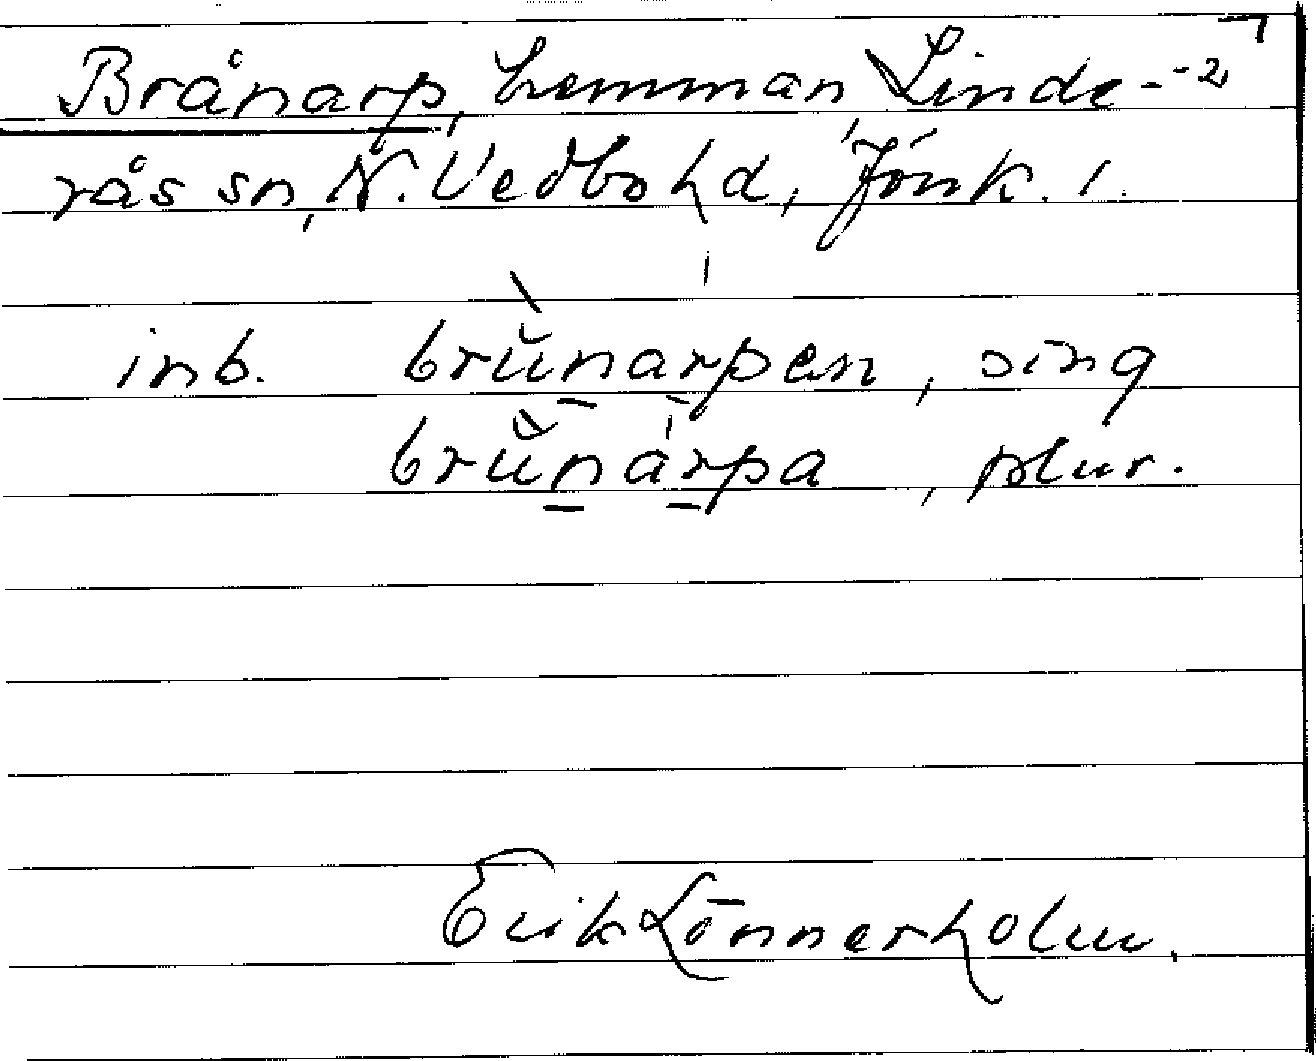 Brånarp, hemman, Linde- -2
rås sn, N. Vedbo hd, Jönk. l.
inb. brŭnarpen, sing
brŭnarpa, plur.
Erik Lönnerholm.